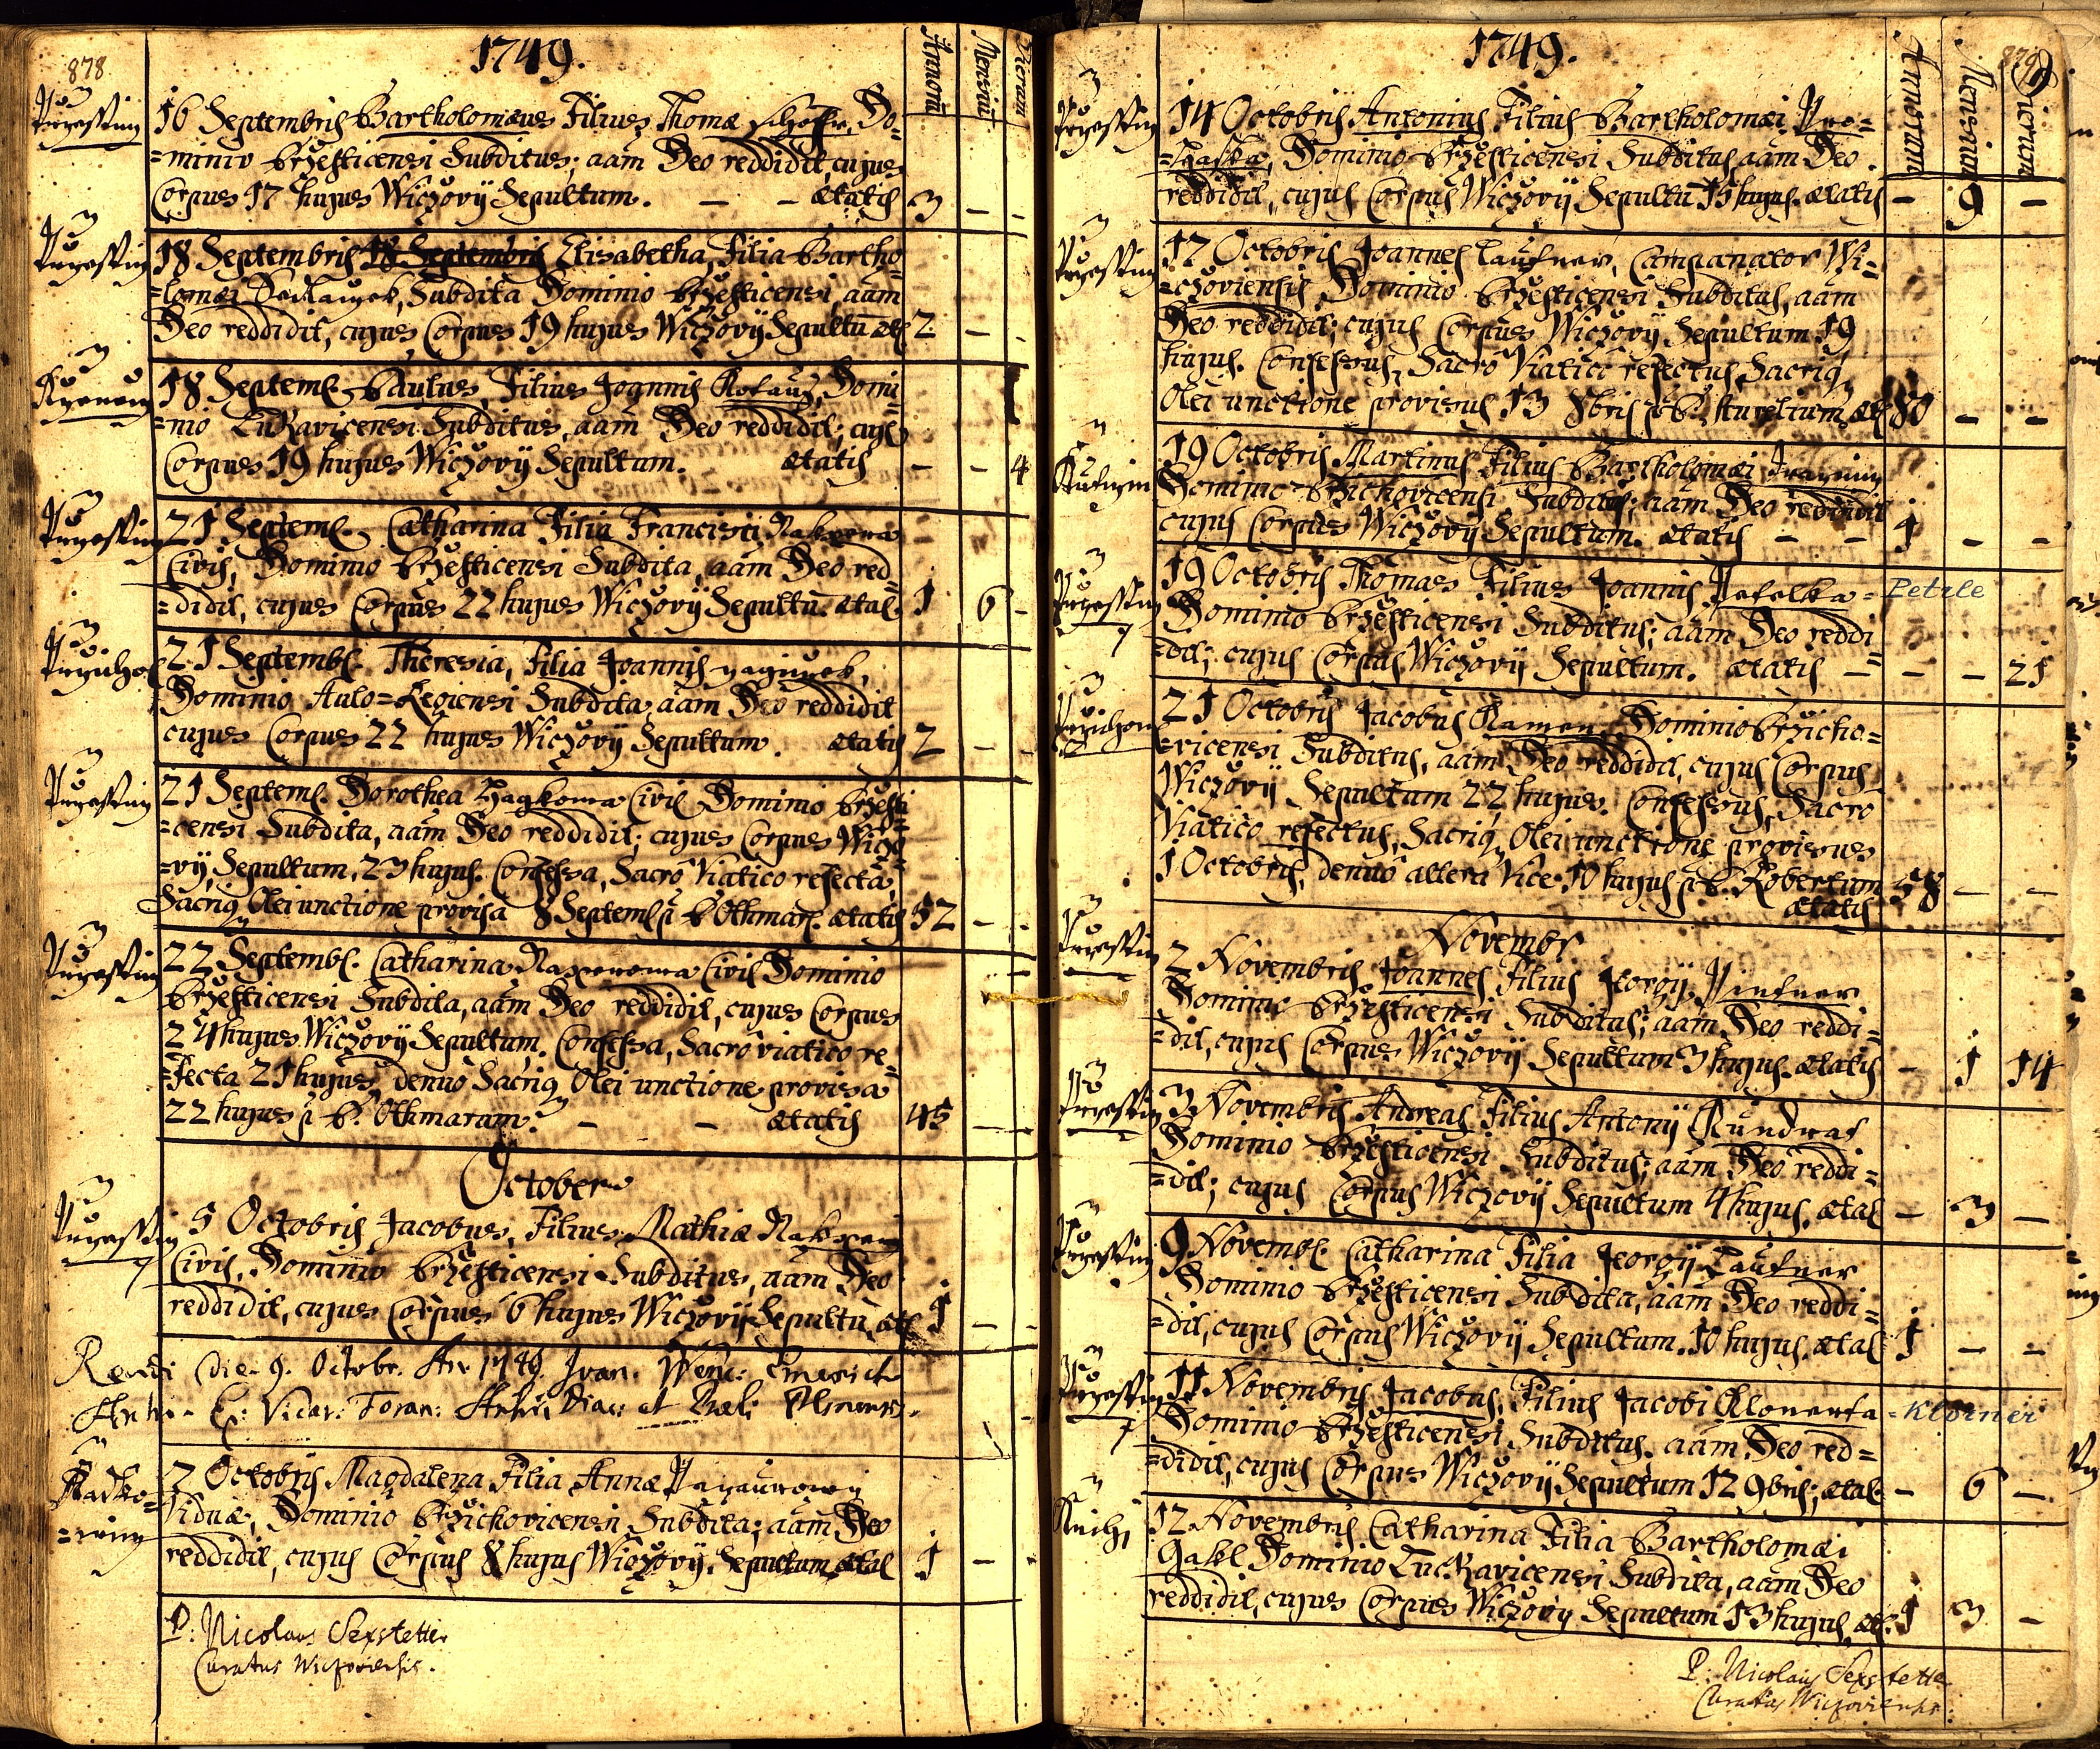 878
1749.
Annorū
Mensiū
Dierum
16 Septembris Bartholomæus Filius Thomæ Do=
=minio Brzesticensi Subditus; aãm Deo reddidit, cujus
Corpus 17 hujus Wiczovÿ Sepultum. — — ætatis 3 — -
18 Septembris 18 Septembris Elisabetha, Filia Bartho=
=lomæi Sedlaczek, Subdita Dominio Brzesticensi, aam
Deo reddidit, cujus Corpus 19 hujus Wiczovÿ Sepultū æt 2 — -
18 Septemb. Paulus, Filius Joannis Domi=
=nio Lukavicensi Subditus, aam Deo reddidit; cujs
Corpus 19 hujus Wiczovÿ Sepultum. ætatis — — 4
21 Septemb. Catharina Filia Francisci
Civis, Dominio Brzesticensi Subdita, aam Deo red=
=didit, cujus Corpus 22 hujus Wiczovÿ Sepultū. ætat. 1 6 -
21 Septemb. Theresia, Filia Joannis
Dominio Aulo=Regiensi Subdita aam Deo reddidit
cujus Corpus 22 hujus Wiczovÿ Sepultum. ætatis 2 — -
21 Septemb. Dorothea Civis Dominio Brzesti
=censi Subdita, aam Deo reddidit; cujus Corpus Wiczo=
=vÿ, Sepultum, 23 hujus. Confessa, Sacro Viatico refecta
Sacriq Olei unctione provisa 8 Septemb p P. Othmar. ætatis 52 — -
22 Septemb. Catharina Civis Dominio
Brzesticensi Subdita, aam Deo reddidit, cujus Corpus
24 hujus Wiczovÿ Sepultum. Confessa, Sacro viatico re=
=fecta 21 hujus, denuo Sacriq Olei unctione provisa
22 hujus p P. Othmarum. — — ætatis 45 —
October
5 Octobris Jacobus, Filius Mathiæ
Civis, Dominio Brzesticensi Subditus, aam Deo
reddidit, cujus Corpus 6 hujus Wiczovÿ Sepultū, æt 1 — -
die 9. Octobr. 1749. Joan. Wenc:
Vicar: Foran:
7 Octobris Magdalena Filia Annæ
Viduæ, Dominio Brzichovicensi Subdita; aam Deo
reddidit, cujus Corpus 8 hujus Wiczovÿ. Sepultum ætat 1 — -
P: Nicolaus Sexstetter
Curatus Wiczoviensis.
879
1749.
Annorum
Mensium
Dierum
14 Octobris Antonius Filius Bartholomæi Pro=
=haska, Dominio Brzesticensi Subditus aam Deo
reddidit, cujus Corpus Wiczovÿ Sepultū 15 hujus. ætatis — 9 —
17 Octobris Joannes Laufner, Campanator Wi=
=czoviensis, Dominio Brzesticensi Subditus, aam
Deo reddidit; cujus Corpus Wiczovÿ Sepultum 19
hujus. Confessus, Sacro Viatico refectus Sacriq
Olei unctione provisus 13 8bris p P. Aurelium æt 80 — —
19 Octobris Martinus Filius Bartholomæi
Dominio Brzichovicensi Subditus; aam Deo reddidit
cujus Corpus Wiczovÿ Sepultum. ætatis — — 1 — —
19 Octobris Thomas Filius Joannis Petelka = Petrle
Dominio Brzesticensi Subditus; aam Deo reddi
=dit; cujus Corpus Wiczovÿ Sepultum. ætatis — — — 21
21 Octobris Jacobus Dominio Brzicho=
=vicensi Subditus, aam Deo reddidit, cujus Corpus
Wiczovÿ Sepultum 22 hujus. Confessus, Sacro
Viatico refectus, Sacriq Olei unctione provisus
1 Octobris, denuo altera Vice 10 hujus p P. Robertum
ætatis 58 — —
Novembr
2 Novembris Joannes Filius Georgÿ Pintner
Dominio Brzesticensi Subditus; aam Deo reddi=
=dit, cujus Corpus Wiczovÿ Sepultum 3 hujus. ætatis — 1 14
3 Novembris Andreas Filius Antonÿ Kundrat
Dominio Brzesticensi Subditus; aam Deo reddi=
=dit; cujus Corpus Wiczovÿ Sepultum 4 hujus. ætat — 3 —
9 Novemb. Catharina Filia Georgÿ Laufner
Dominio Brzesticensi Subdita, aam Deo reddi=
=dit, cujus Corpus Wiczovÿ Sepultum. 10 hujus. ætat 1 — —
11 Novembris Jacobus, Filius Jacobi = Klorner
Dominio Brzesticensi Subditus. aam Deo red=
=didit, cujus Corpus Wiczovÿ Sepultum 12 9bris; ætat. — 6 —
12 Novembris Catharina Filia Bartholomæi
Dominio Lukavicensi Subdita, aam Deo
reddidit, cujus Corpus Wiczovÿ Sepultum 13 hujus æt. 1 3 —
P: Nicolaus Sexstetter
Curatus Wiczoviensis.